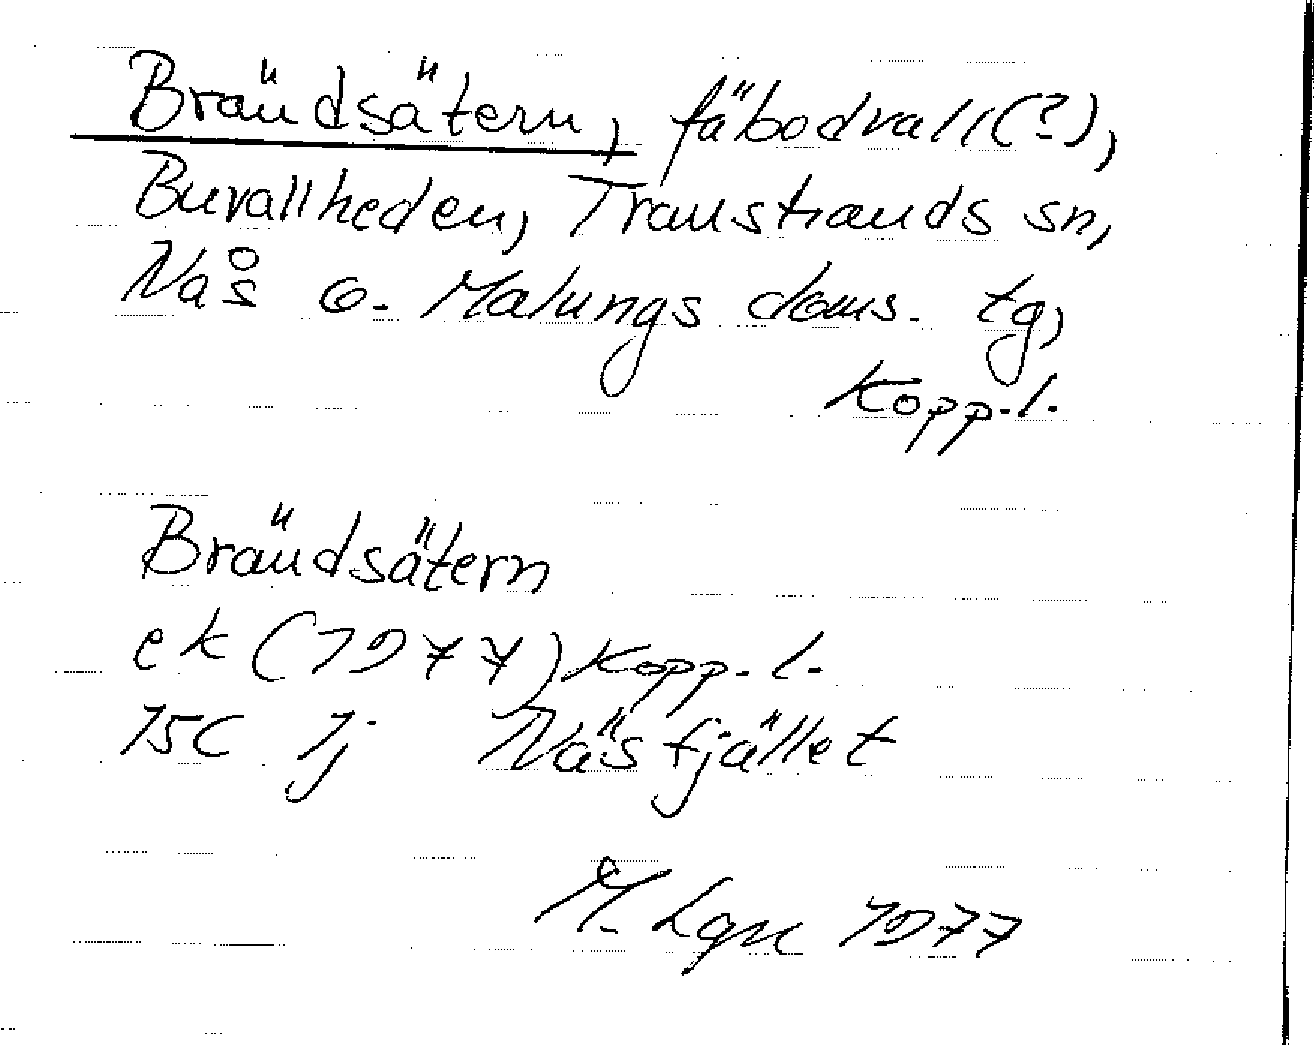 Brändsätern, fäbodvall(?),
Buvallheden, Transtrands sn,
Nås o. Malungs doms. tg,
Kopp. l.
Brändsätern
ek (1977) Kopp. l.
15C 1j Näsfjället
M. Lgn 1977